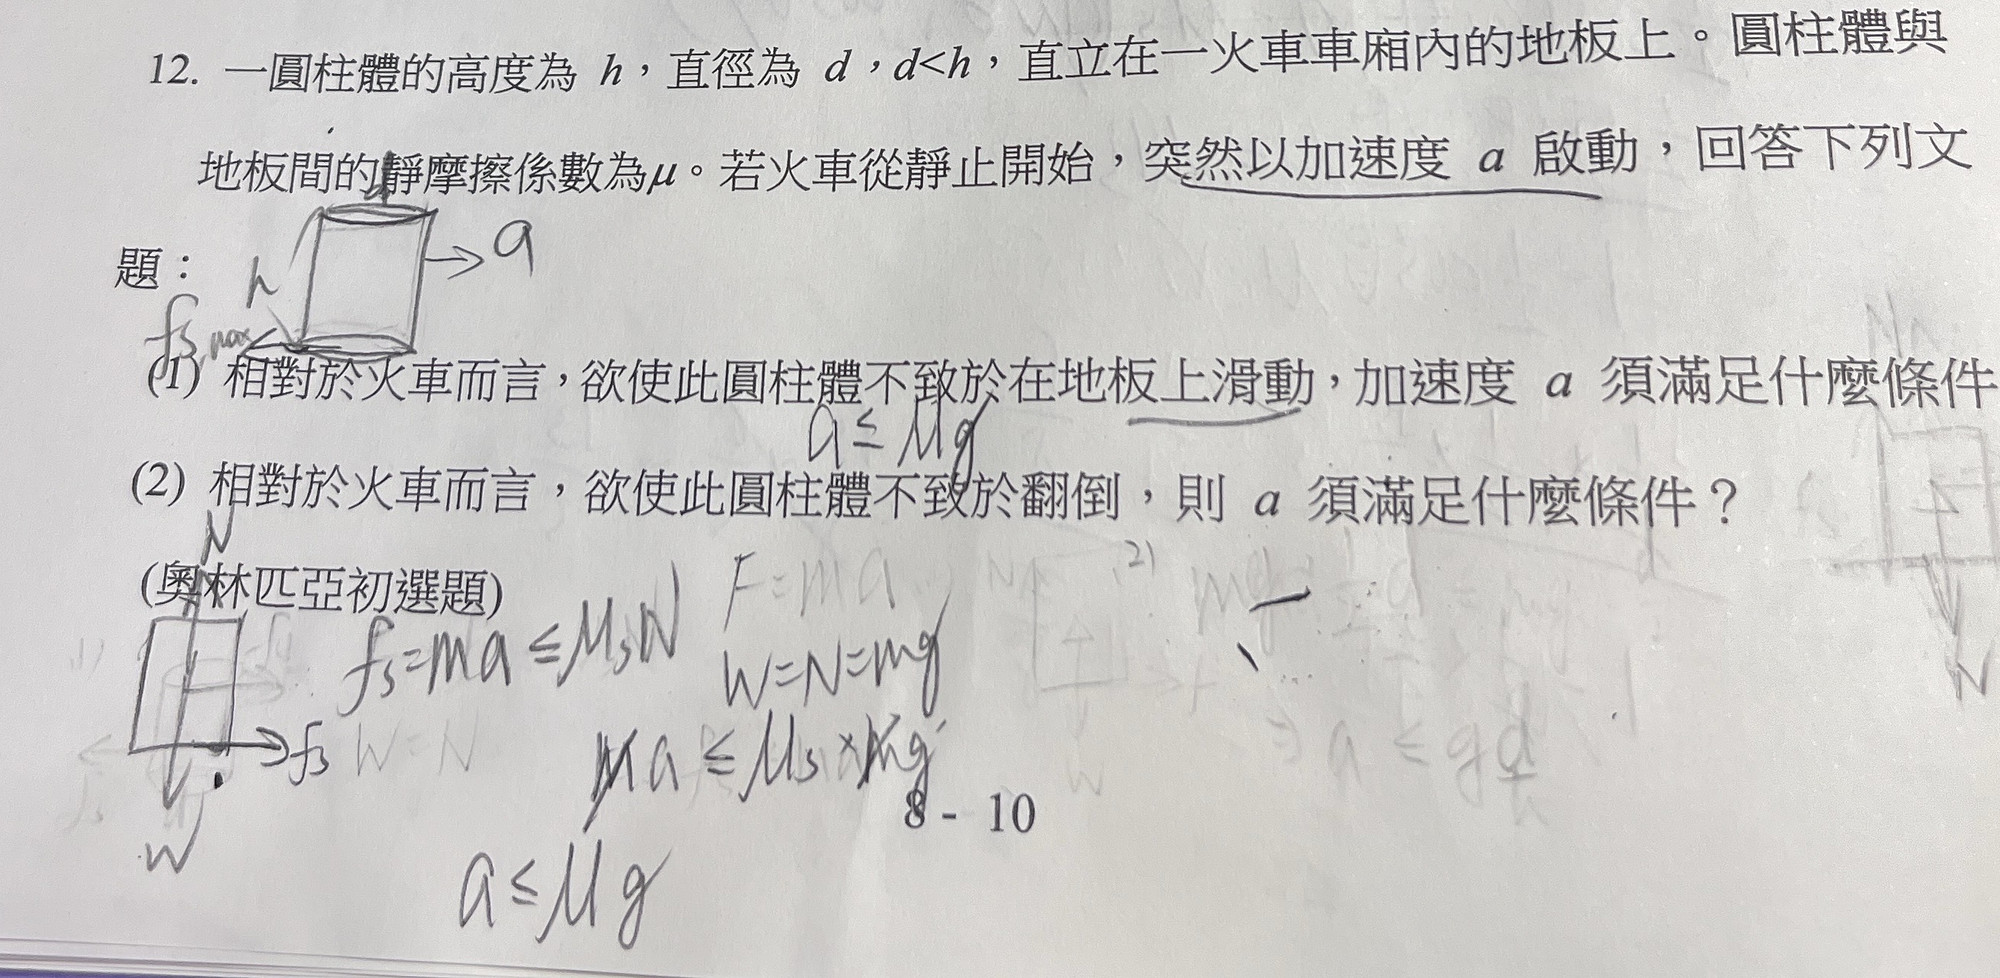 12. 一圓柱體的高度為 h，直徑為 d，d<h，直立在一火車車廂內的地板上。圓柱體與
地板間的靜摩擦係數為μ。若火車從靜止開始，突然以加速度 a 啟動，回答下列文
題：
d
h
a
fs,max
(1) 相對於火車而言，欲使此圓柱體不致於在地板上滑動，加速度 a 須滿足什麼條件
a≤μg
(2) 相對於火車而言，欲使此圓柱體不致於翻倒，則 a 須滿足什麼條件？
N
(奧林匹亞初選題)
fs=ma≤μsN
F=ma
W=N=mg
fs
W=N
ma≤μs×mg
W
8 - 10
a≤μg